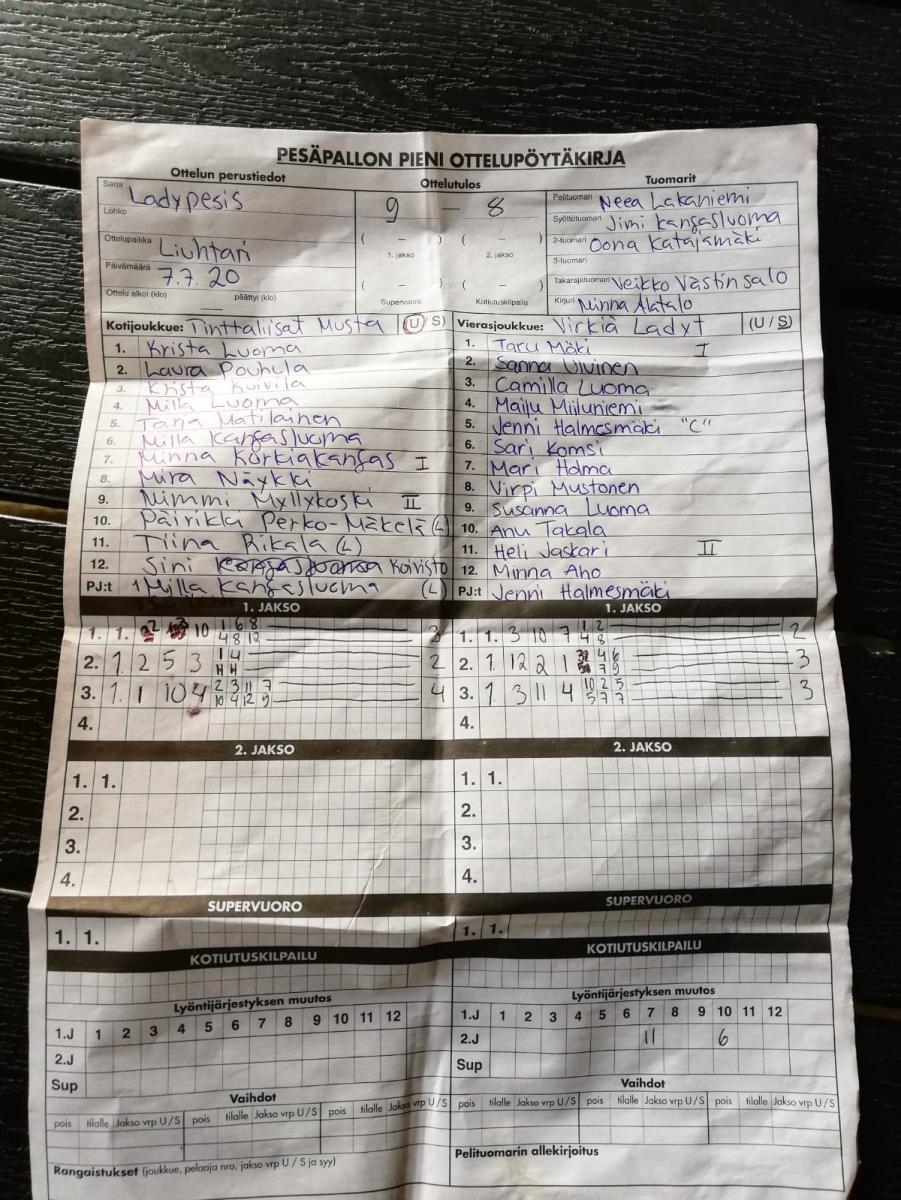 PESÄPALLON PIENI OTTELUPÖYTÄKIRJA
Ottelun perustiedot
Sarja Ladypesis
Lohko
Ottelupaikka Liuhtari
Päivämäärä 7.7.20
Ottelu alkoi (klo) päättyi (klo)
Ottelutulos
9 – 8
( – ) ( – )
1. jakso 2. jakso
( – ) ( – )
Supervuoro Kotiutuskilpailu
Tuomarit
Pelituomari Neea Lakaniemi
Syöttötuomari Jimi Kangasluoma
2-tuomari Oona Katajamäki
3-tuomari
Takarajatuomari Veikko Västinsalo
Kirjuri Minna Alatalo
Kotijoukkue: Tinttaliisat Musta (U/S)
1. Krista Luoma
2. Laura Pouhula
3. Krista Kuivila
4. Milla Luoma
5. Tarja Matilainen
6. Milla Kangasluoma
7. Minna Korkiakangas I
8. Mira Näykki
9. Nimmi Myllykoski II
10. Päivikki Perko-Mäkelä (L)
11. Tiina Rikala (L)
12. Sini Koivisto (L)
PJ:t Milla Kangasluoma
Vierasjoukkue: Virkiä Ladyt (U/S)
1. Taru Mäki I
2. Sanna Ulvinen
3. Camilla Luoma
4. Maiju Miiluniemi
5. Jenni Halmesmäki "C"
6. Sari Komsi
7. Mari Holma
8. Virpi Mustonen
9. Susanna Luoma
10. Anu Takala
11. Heli Jaskari II
12. Minna Aho
PJ:t Jenni Halmesmäki
1. JAKSO
1. 1. 10 1 6 8 3
4 8 12
2. 1. 2 5 3 1 4 2
H H
3. 1. 1 10 4 2 3 11 7 4
10 4 12 9
4.
1. JAKSO
1. 1. 3 10 7 1 2 2
4 8
2. 1. 12 2 1 4 6 3
7 9
3. 1. 3 11 4 10 2 5 3
5 7 7
4.
2. JAKSO
1. 1.
2.
3.
4.
2. JAKSO
1. 1.
2.
3.
4.
SUPERVUORO
1. 1.
SUPERVUORO
1. 1.
KOTIUTUSKILPAILU
KOTIUTUSKILPAILU
Lyöntijärjestyksen muutos
1.J 1 2 3 4 5 6 7 8 9 10 11 12
2.J
Sup
Lyöntijärjestyksen muutos
1.J 1 2 3 4 5 6 7 8 9 10 11 12
2.J 11 6
Sup
Vaihdot
pois tilalle Jakso vrp U/S pois tilalle Jakso vrp U/S pois tilalle Jakso vrp U/S
Vaihdot
pois tilalle Jakso vrp U/S pois tilalle Jakso vrp U/S pois tilalle Jakso vrp U/S
Rangaistukset (joukkue, pelaaja nro, jakso vrp U / S ja syy)
Pelituomarin allekirjoitus